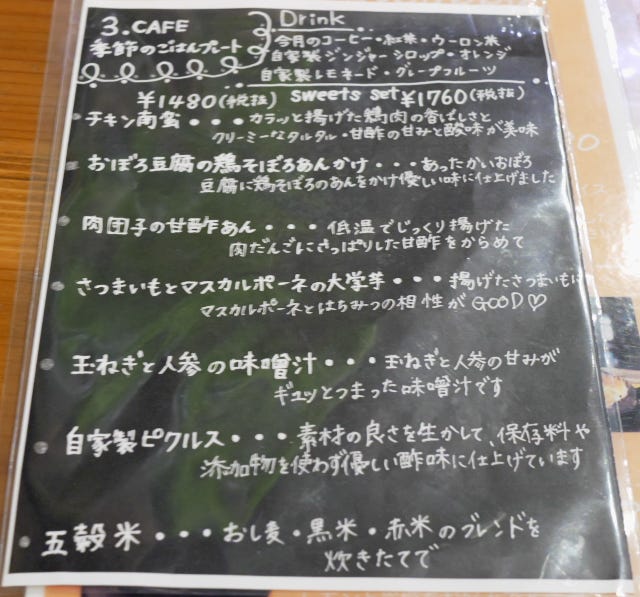 3.CAFE
季節のごはんプレート
Drink
今月のコーヒー・紅茶・ウーロン茶
自家製ジンジャーシロップ・オレンジ
自家製レモネード・グレープフルーツ
¥1480(税抜) sweets set ¥1760(税抜)
チキン南蛮・・・カラッと揚げた鶏肉の香ばしさと
クリーミーなタルタル・甘酢の甘みと酸味が美味
おぼろ豆腐の鶏そぼろあんかけ・・・あったかいおぼろ
豆腐に鶏そぼろのあんをかけ優しい味に仕上げました
肉団子の甘酢あん・・・低温でじっくり揚げた
肉だんごにさっぱりした甘酢をからめて
さつまいもとマスカルポーネの大学芋・・・揚げたさつまいもに
マスカルポーネとはちみつの相性がGOOD♡
玉ねぎと人参の味噌汁・・・玉ねぎと人参の甘みが
ギュッとつまった味噌汁です
自家製ピクルス・・・素材の良さを生かして、保存料や
添加物を使わず優しい酢味に仕上げています
五穀米・・・おし麦・黒米・赤米のブレンドを
炊きたてで